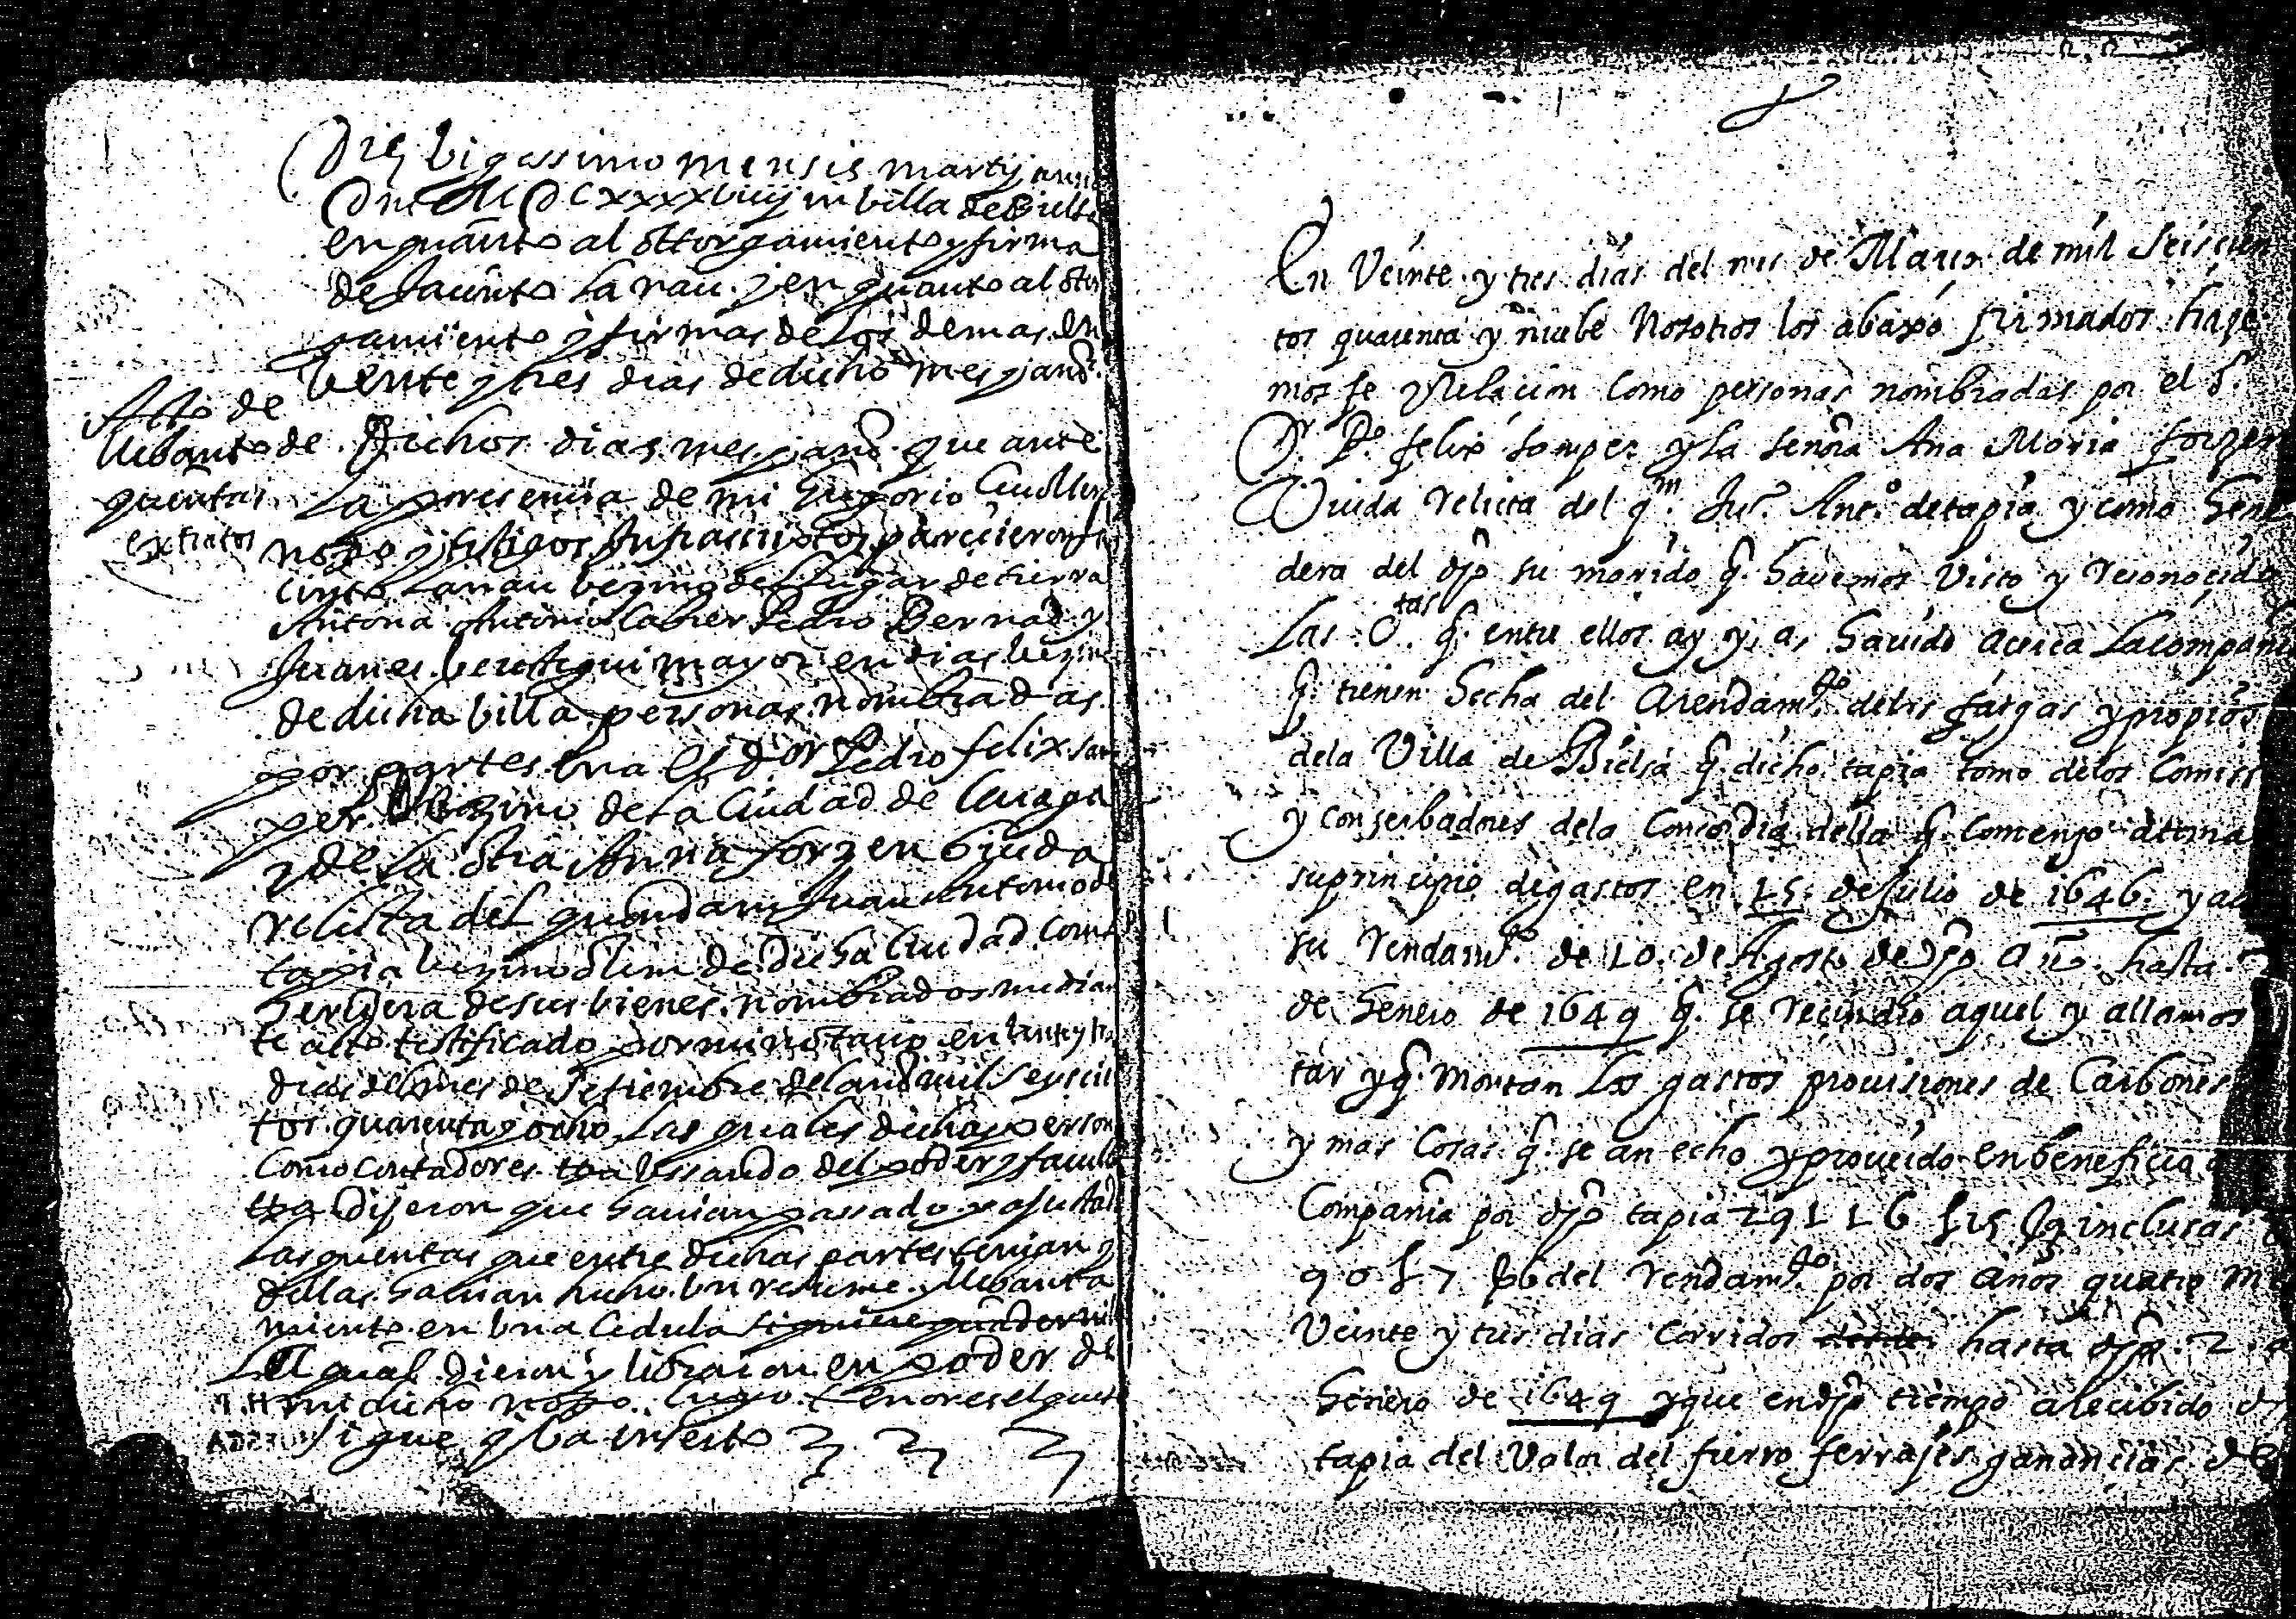 Die bigessimo mensis martij anno
Dni MDCXXXXVIIIJ in billa de Bielsa
en quanto al ottorgamiento y firma
de Jacinto Lanau. y en quanto al otor
gamiento y firmas de los demas en
bente y tres dias de dicho mes y año.
Acto de
llebanto de
quentas
extractos
Dichos dias mes y año. que ante
La presencia de mi Gregorio
noto y testigos Infrascriptos parecieron Ja
cinto Lanau bezino del Lugar de tierra
Antona Antonio Pedro Bernad y
Juan mayor en dias bezinos
de dicha billa personas nombradas
por partes bna el Dor Pedro felix sam
per bezino de la Ciudad de
y de la otra Anna forzen biuda
relicta del quondam Juan Antonio de
tapia bezino olim de dicha Ciudad Como
heredera de sus bienes. nombrados median
te acto testificado por mi notario en
dias del mes de Setiembre del año mil seyscien
tos quarenta y ocho Las quales dichas person
Como Contadores bssando del poder y facult
Dijeron que hauian passado y ajustado
Las quentas que entre dichas partes tenian y
dellas hauian hecho bn resume y llebanta
miento en bna Cedula
La qual dieron y libraron en poder de
mi dicho noto. cuyo tenor es el que se
sigue y ba inserto
En Veinte y tres dias del mes de Março de mil Seiscien
tos quarenta y nuebe Nosotros los abaxo firmados haze
mos fe y Relacion Como personas nombradas por el Sr.
Dr. Po. felix Samper y la Señora Ana Maria forzen
Viuda relicta del qm. Jua. Anto. de tapia y como here
dera del dho su marido q. hauemos Visto y reconocido
Las Ctas q. entre ellos ay y a hauido acerca la compania
q. tienen hecha del Arendamto. de las fargas y propios
dela Villa de Bielsa q. dicho tapia tomo delos Comiss
y conserbadores dela Concordia della q. Comenzo a tomar
su principio de gastos en 15 de Julio de 1646. y
su rendamto. de 10. de Agosto de dho año. hasta 2
de henero de 1649 q. se recindio aquel y allamos
tar y q. montan los gastos prouisiones de Carbones
y mas Cosas q. se an echo y proueido en beneficio
Compania por dho tapia 29116 s 15 inclusas
90 s 7 del rendamto. por dos años quatro me
Veinte y tres dias Corridos hasta dho 2
henero de 1649 y que en dho tiempo a recibido
tapia del Valor del fierro ferrajes ganancias de